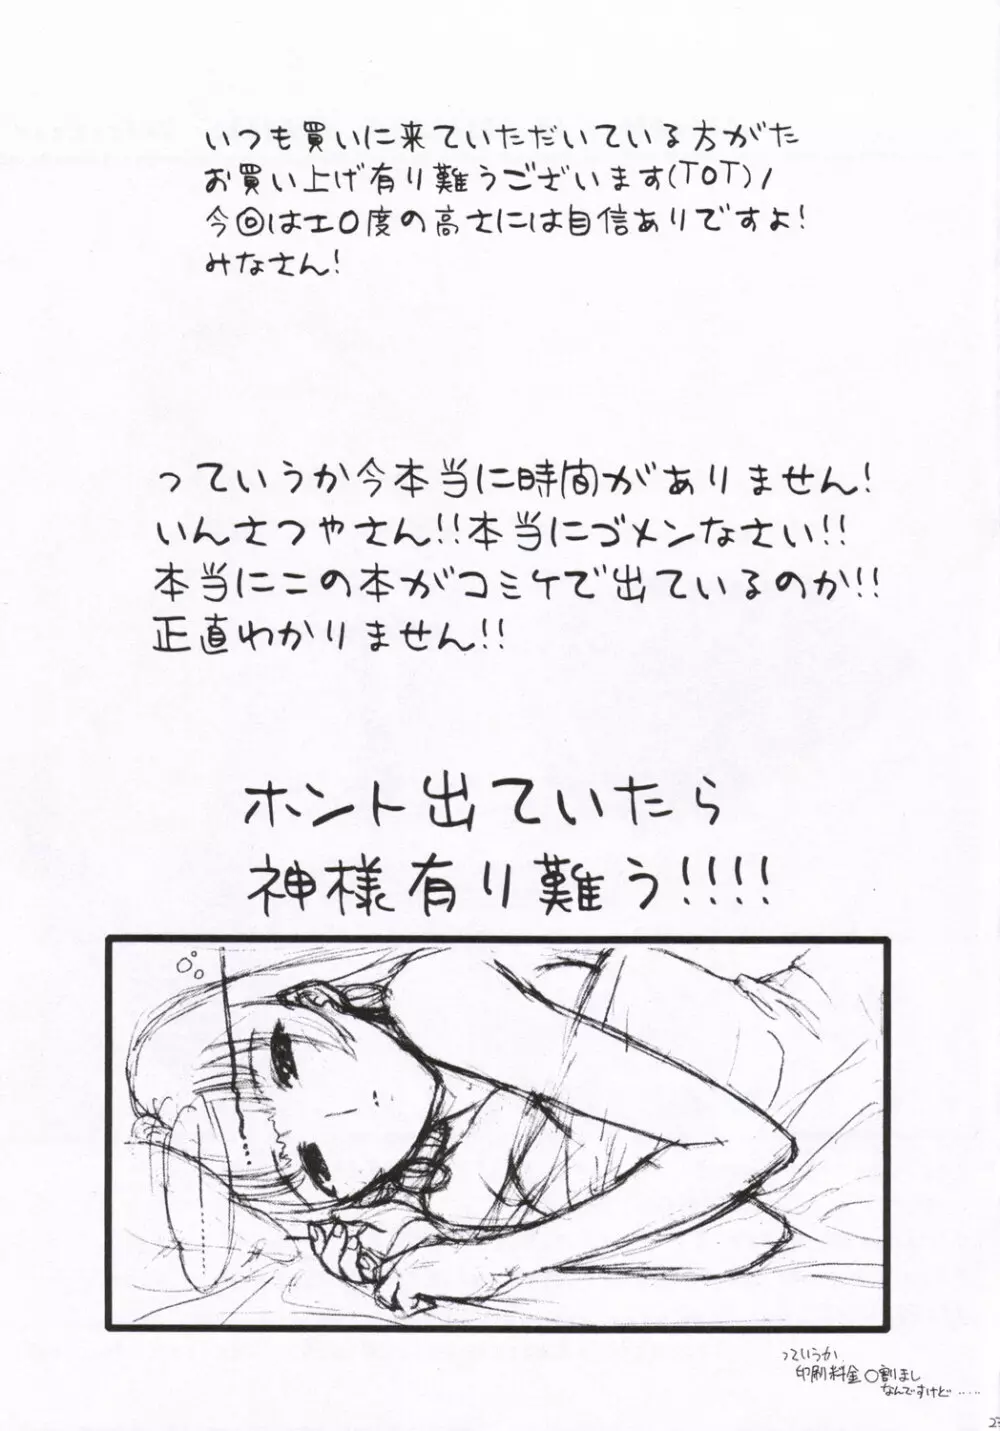 いつも買いに来ていただいている方がた
お買い上げ有り難うございます(TOT)/
今回はエロ度の高さには自信ありですよ!
みなさん!
っていうか今本当に時間がありません!
いんさつやさん!!本当にゴメンなさい!!
本当にこの本がコミケで出ているのか!!
正直わかりません!!
ホント出ていたら
神様有り難う!!!!
っていうか
印刷料金○割まし
なんですけど……
23